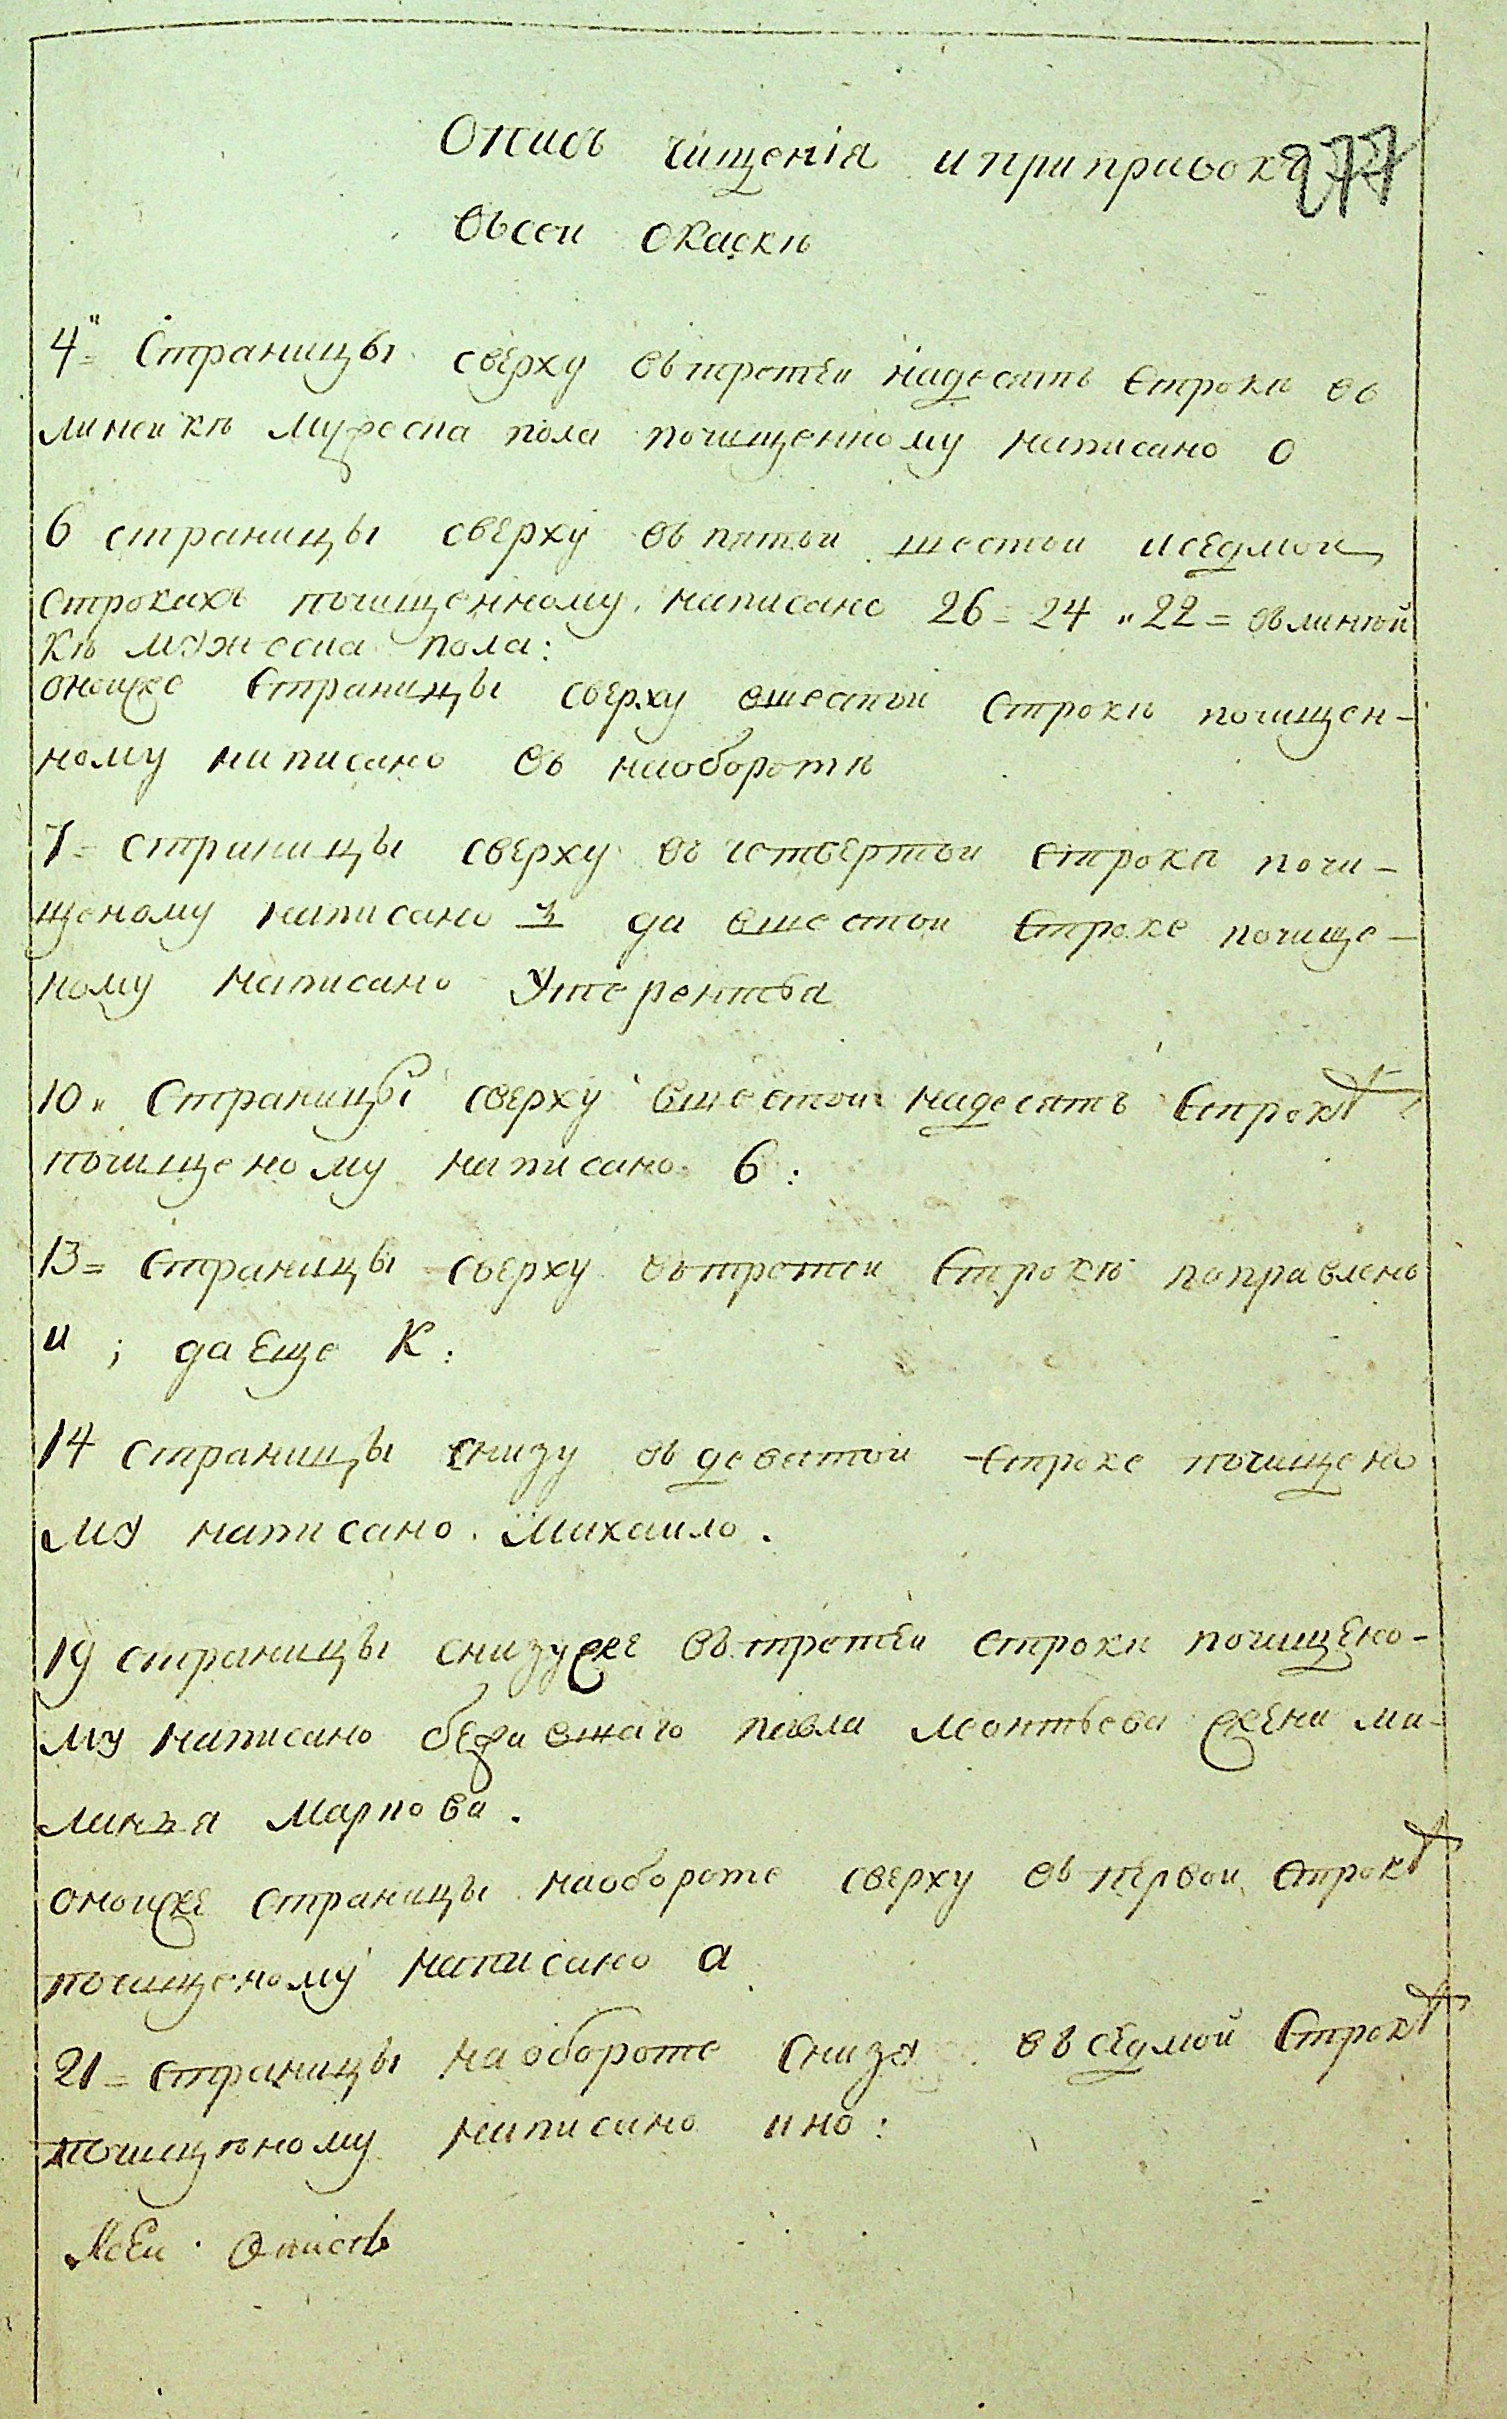 Опись чищенія и приправокъ 277
въ сеи скаскѣ
4 = Страницы сверху въ третеи надесять строкѣ въ
линеикѣ мужеска пола почищенному написано 0
6 страницы сверху въ пятои шестои и седмои
строкахъ почищенному написано 26 = 24 " 22 = въ линѣй
кѣ мужеска пола:
оноиже страницы сверху вшестои строкѣ почищен-
ному написано въ наоборотѣ
7 = страницы сверху въ четвертои строкѣ почи-
щеному написано 3 да вшестои строке почище-
ному написано У терентья
10 " Страницы сверху вшестои надесять строкѣ
почищеному написано 6:
13 = страницы сверху въ третеи строкѣ поправлено
и ; да еще К:
14 страницы снизу въ девятои строке почищено
му написано Михаило.
19 страницы снизу же въ третеи строкѣ почищено-
му написано павла леонтьева жена ма-
марпова.
оноиже страницы наобороте сверху въ первои строкѣ
почищеному написано а
21 = страницы наобороте снизу въ седмой строкѣ
почищѣному написано ино:
опись